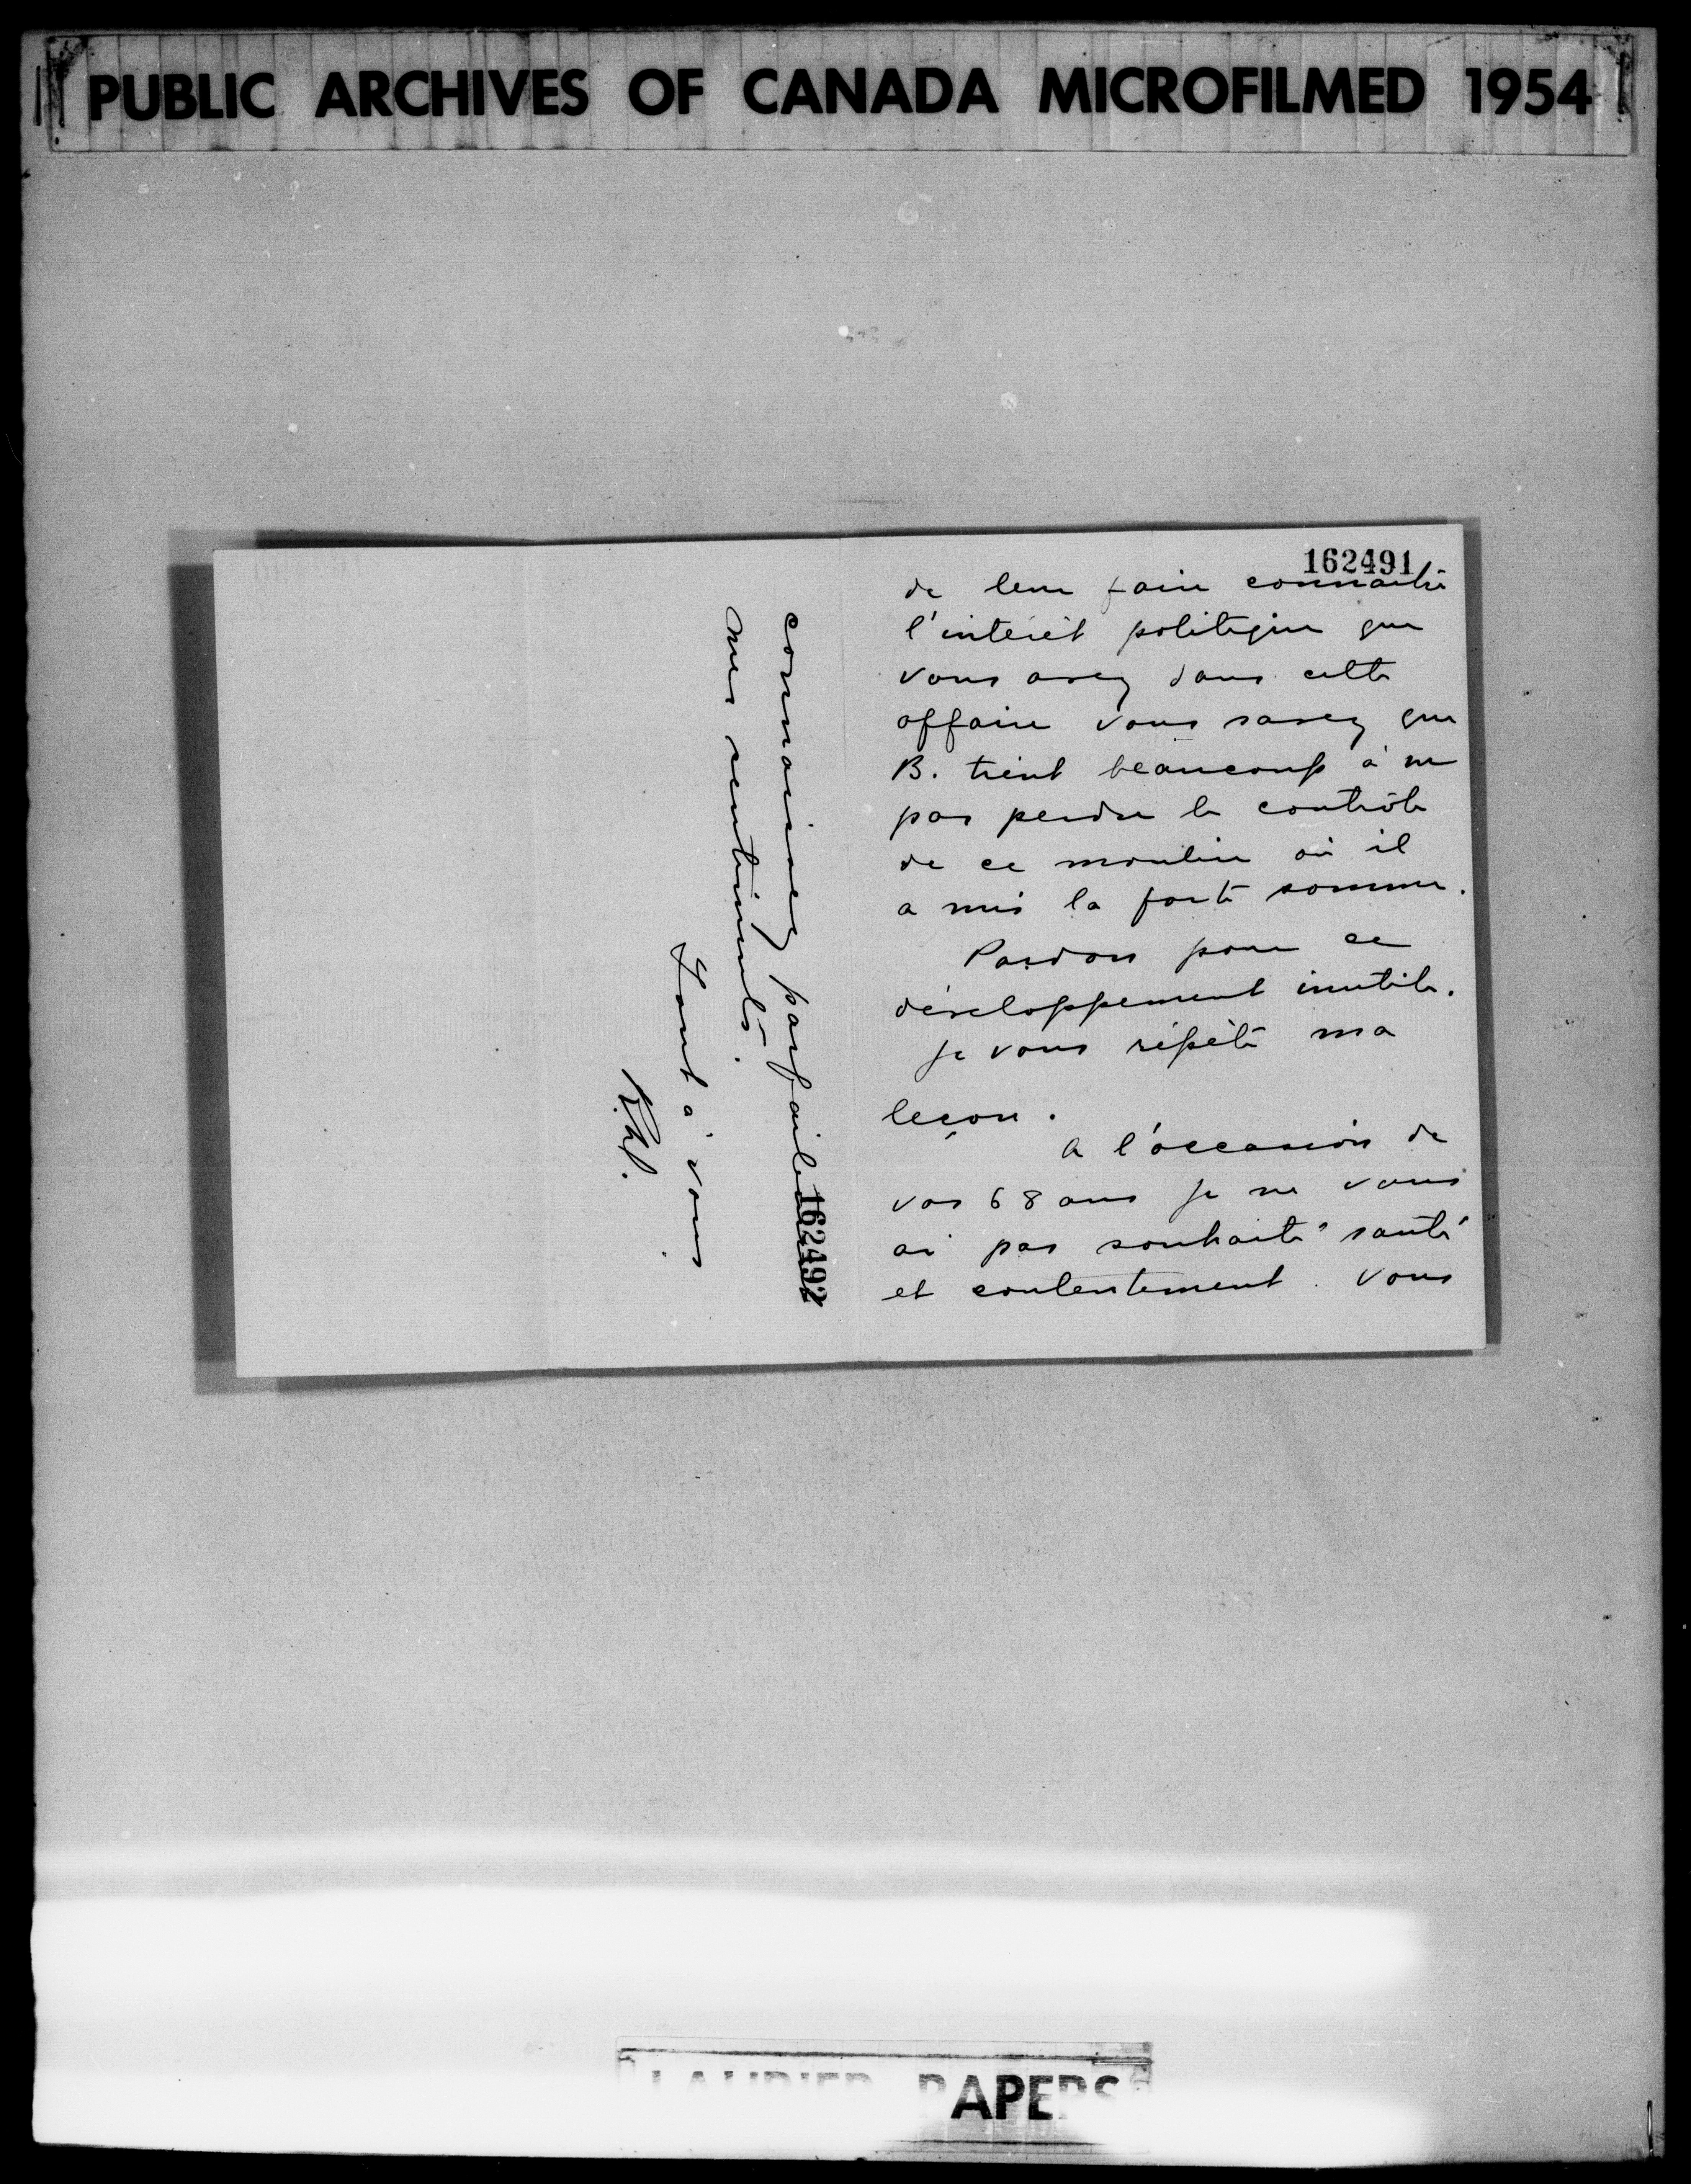 PUBLIC ARCHIVES OF CANADA MICROFILMED 1954
162491
de leur faire connaître
l'intérêt politique que
vous avez dans cette
affaire vous savez que
B. tient beaucoup à ne
pas perdre le contrôle
de ce moulin où il
a mis la forte somme.
Pardon pour ce
développement inutile.
Je vous répète ma
leçon.
A l'occasion de
vos 68 ans je ne vous
ai pas souhaité santé
et contentement. Vous
connaissez parfaitement
162492
mes sentiments.
Tout à vous
LAURIER PAPERS